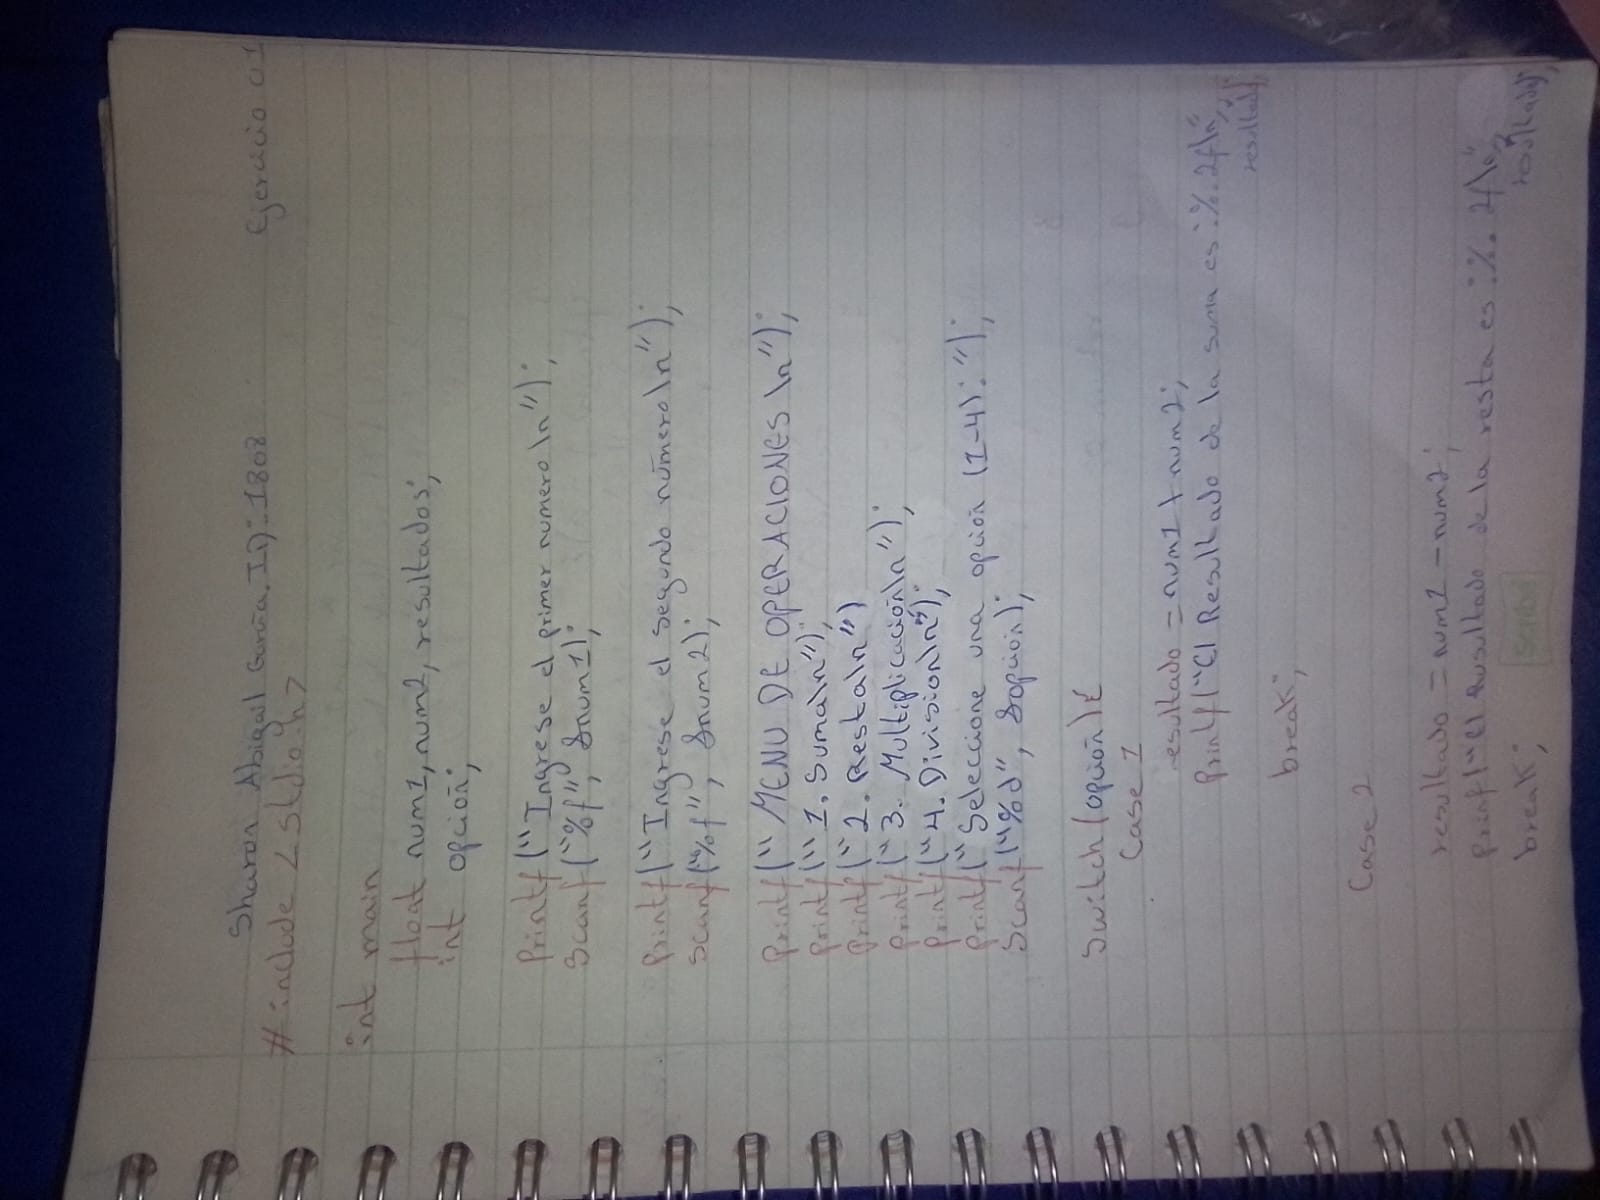 Sharon Abigail García. ID: 1808 Ejercicio 01
# include <stdio.h>
int main
float num1, num2, resultados;
int opción;
printf("Ingrese el primer numero\n");
Scanf("%f", &num1);
printf("Ingrese el segundo número\n");
scanf("%f", &num2);
printf("MENU DE OPERACIONES\n");
printf("1. Suma\n");
printf("2. Resta\n")
printf("3. Multiplicación\n");
printf("4. División\n");
printf("Seleccione una opción (1-4): ");
Scanf("%d", &opción);
Switch(opción){
Case 1
resultado = num1 + num2;
Printf("El Resultado de la suma es: %.2f\n",
resultado);
break;
Case 2
resultado = num1 - num2;
printf("El Resultado de la resta es: %.2f\n",
resultado);
break;